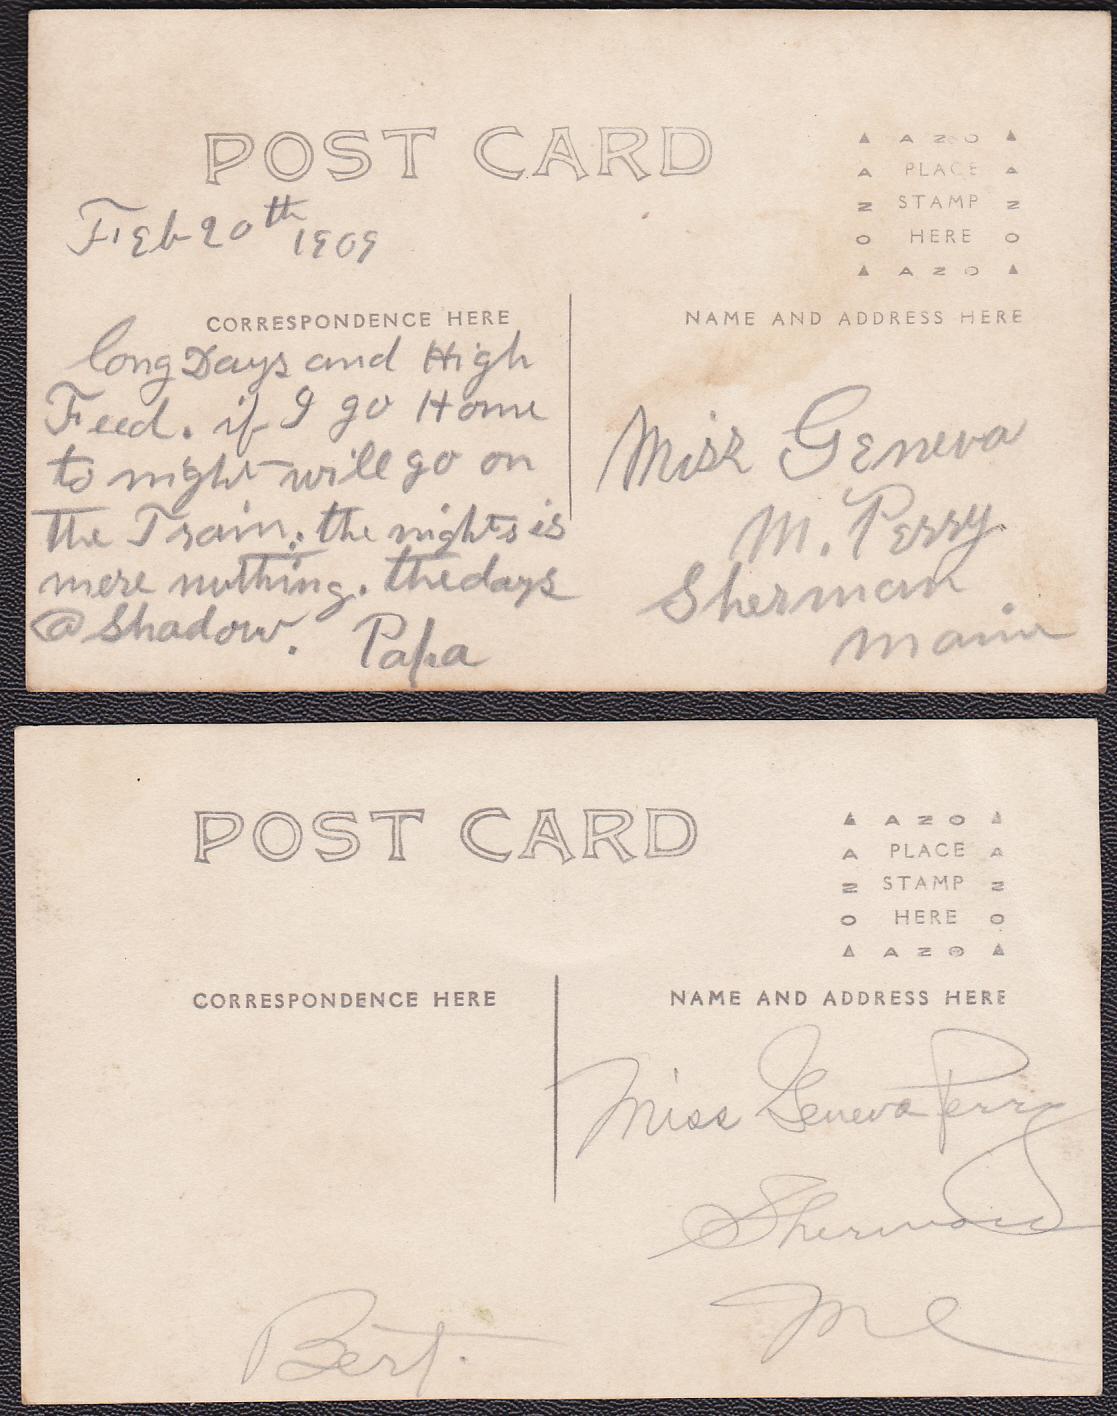 POST CARD
▲ A Z O ▲
A PLACE A
Z STAMP Z
O HERE O
▲ A Z O ▲
Feb 20th 1909
CORRESPONDENCE HERE
long Days and High
Feed. if I go Home
to night will go on
the Train. the nights is
mere nothing. the days
@ Shadow.
Papa
NAME AND ADDRESS HERE
Miss Geneva
M. Perry
Sherman
Main
POST CARD
▲ A Z O ▲
A PLACE A
Z STAMP Z
O HERE O
▲ A Z O ▲
CORRESPONDENCE HERE
NAME AND ADDRESS HERE
Miss Geneva Perry
Me
Bert.